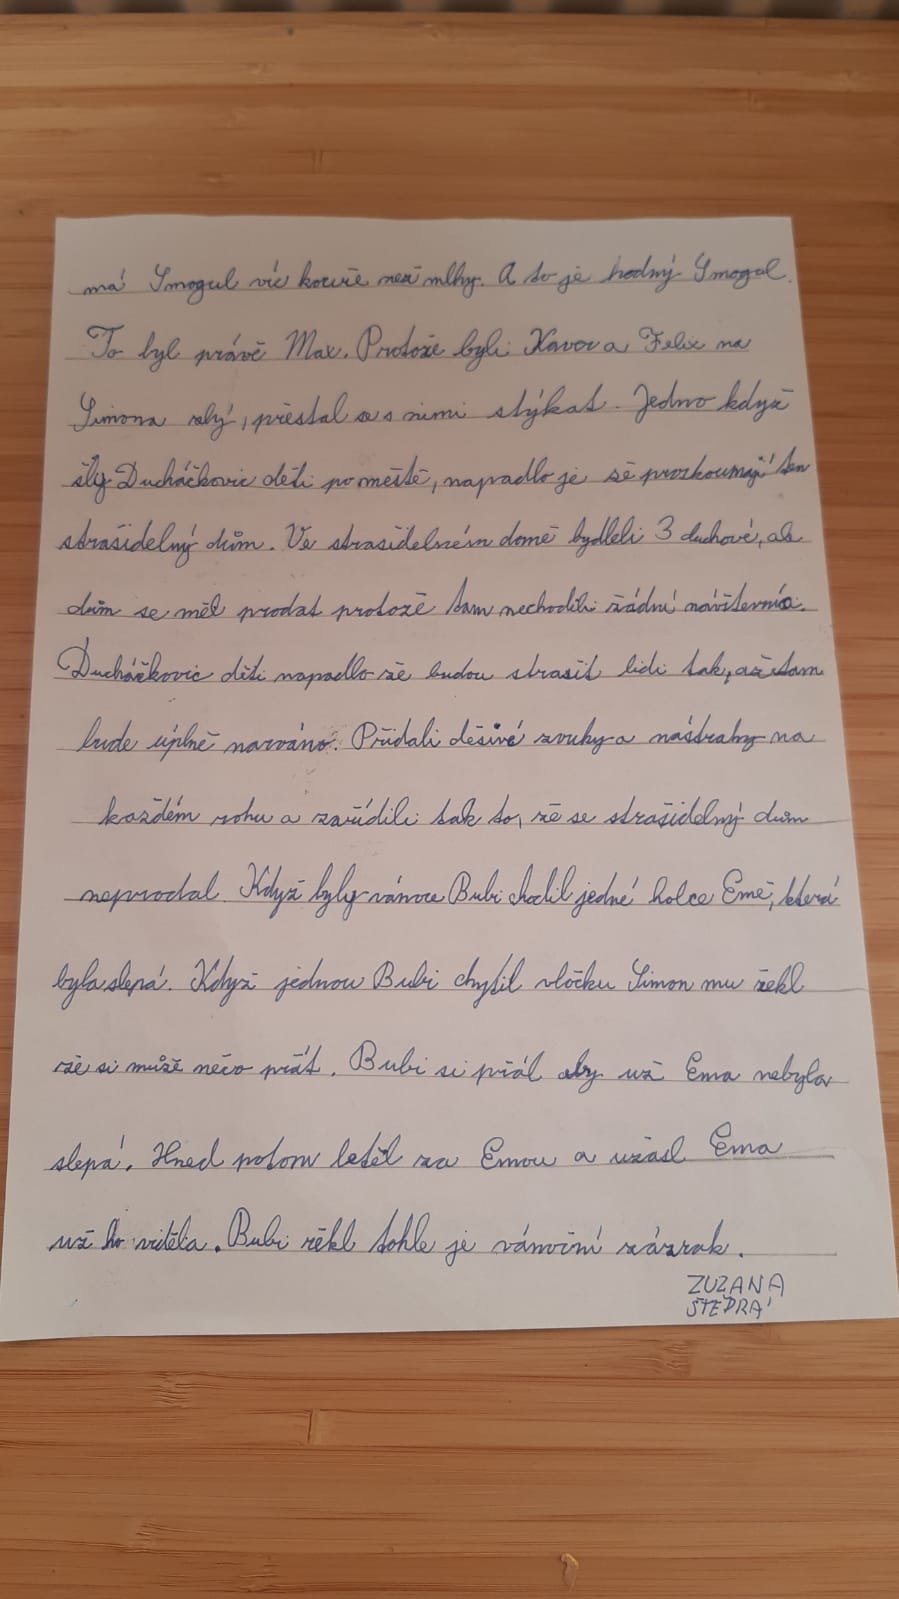 má Smogul víc kouře než mlhy. A to je hodný Smogul.
To byl právě Max. Protože byli Xaver a Felix na
Simona zlý, přestal se s nimi stýkat. Jedno když
šly Ducháčkovic děti po městě, napadlo je že prozkoumají ten
strašidelný dům. Ve strašidelném domě bydleli 3 duchové, ale
dům se měl prodat protože tam nechodili žádní návštevníci.
Ducháčkovic děti napadlo že budou strašit lidi tak, až tam
bude úplně narváno. Přidali děsivé zvuky a nástrahy na
každém rohu a zařídili tak to, že se strašidelný dům
neprodal. Když byly vánoce Bubi chodil jedné holce Emě, která
byla slepá. Když jednou Bubi chytil vločku Simon mu řekl
že si může něco přát. Bubi si přál aby už Ema nebyla
slepá. Hned potom letěl za Emou a užasl Ema
už ho viděla. Bubi řekl tohle je vánoční zázrak.
ZUZANA
ŠTĚDRÁ